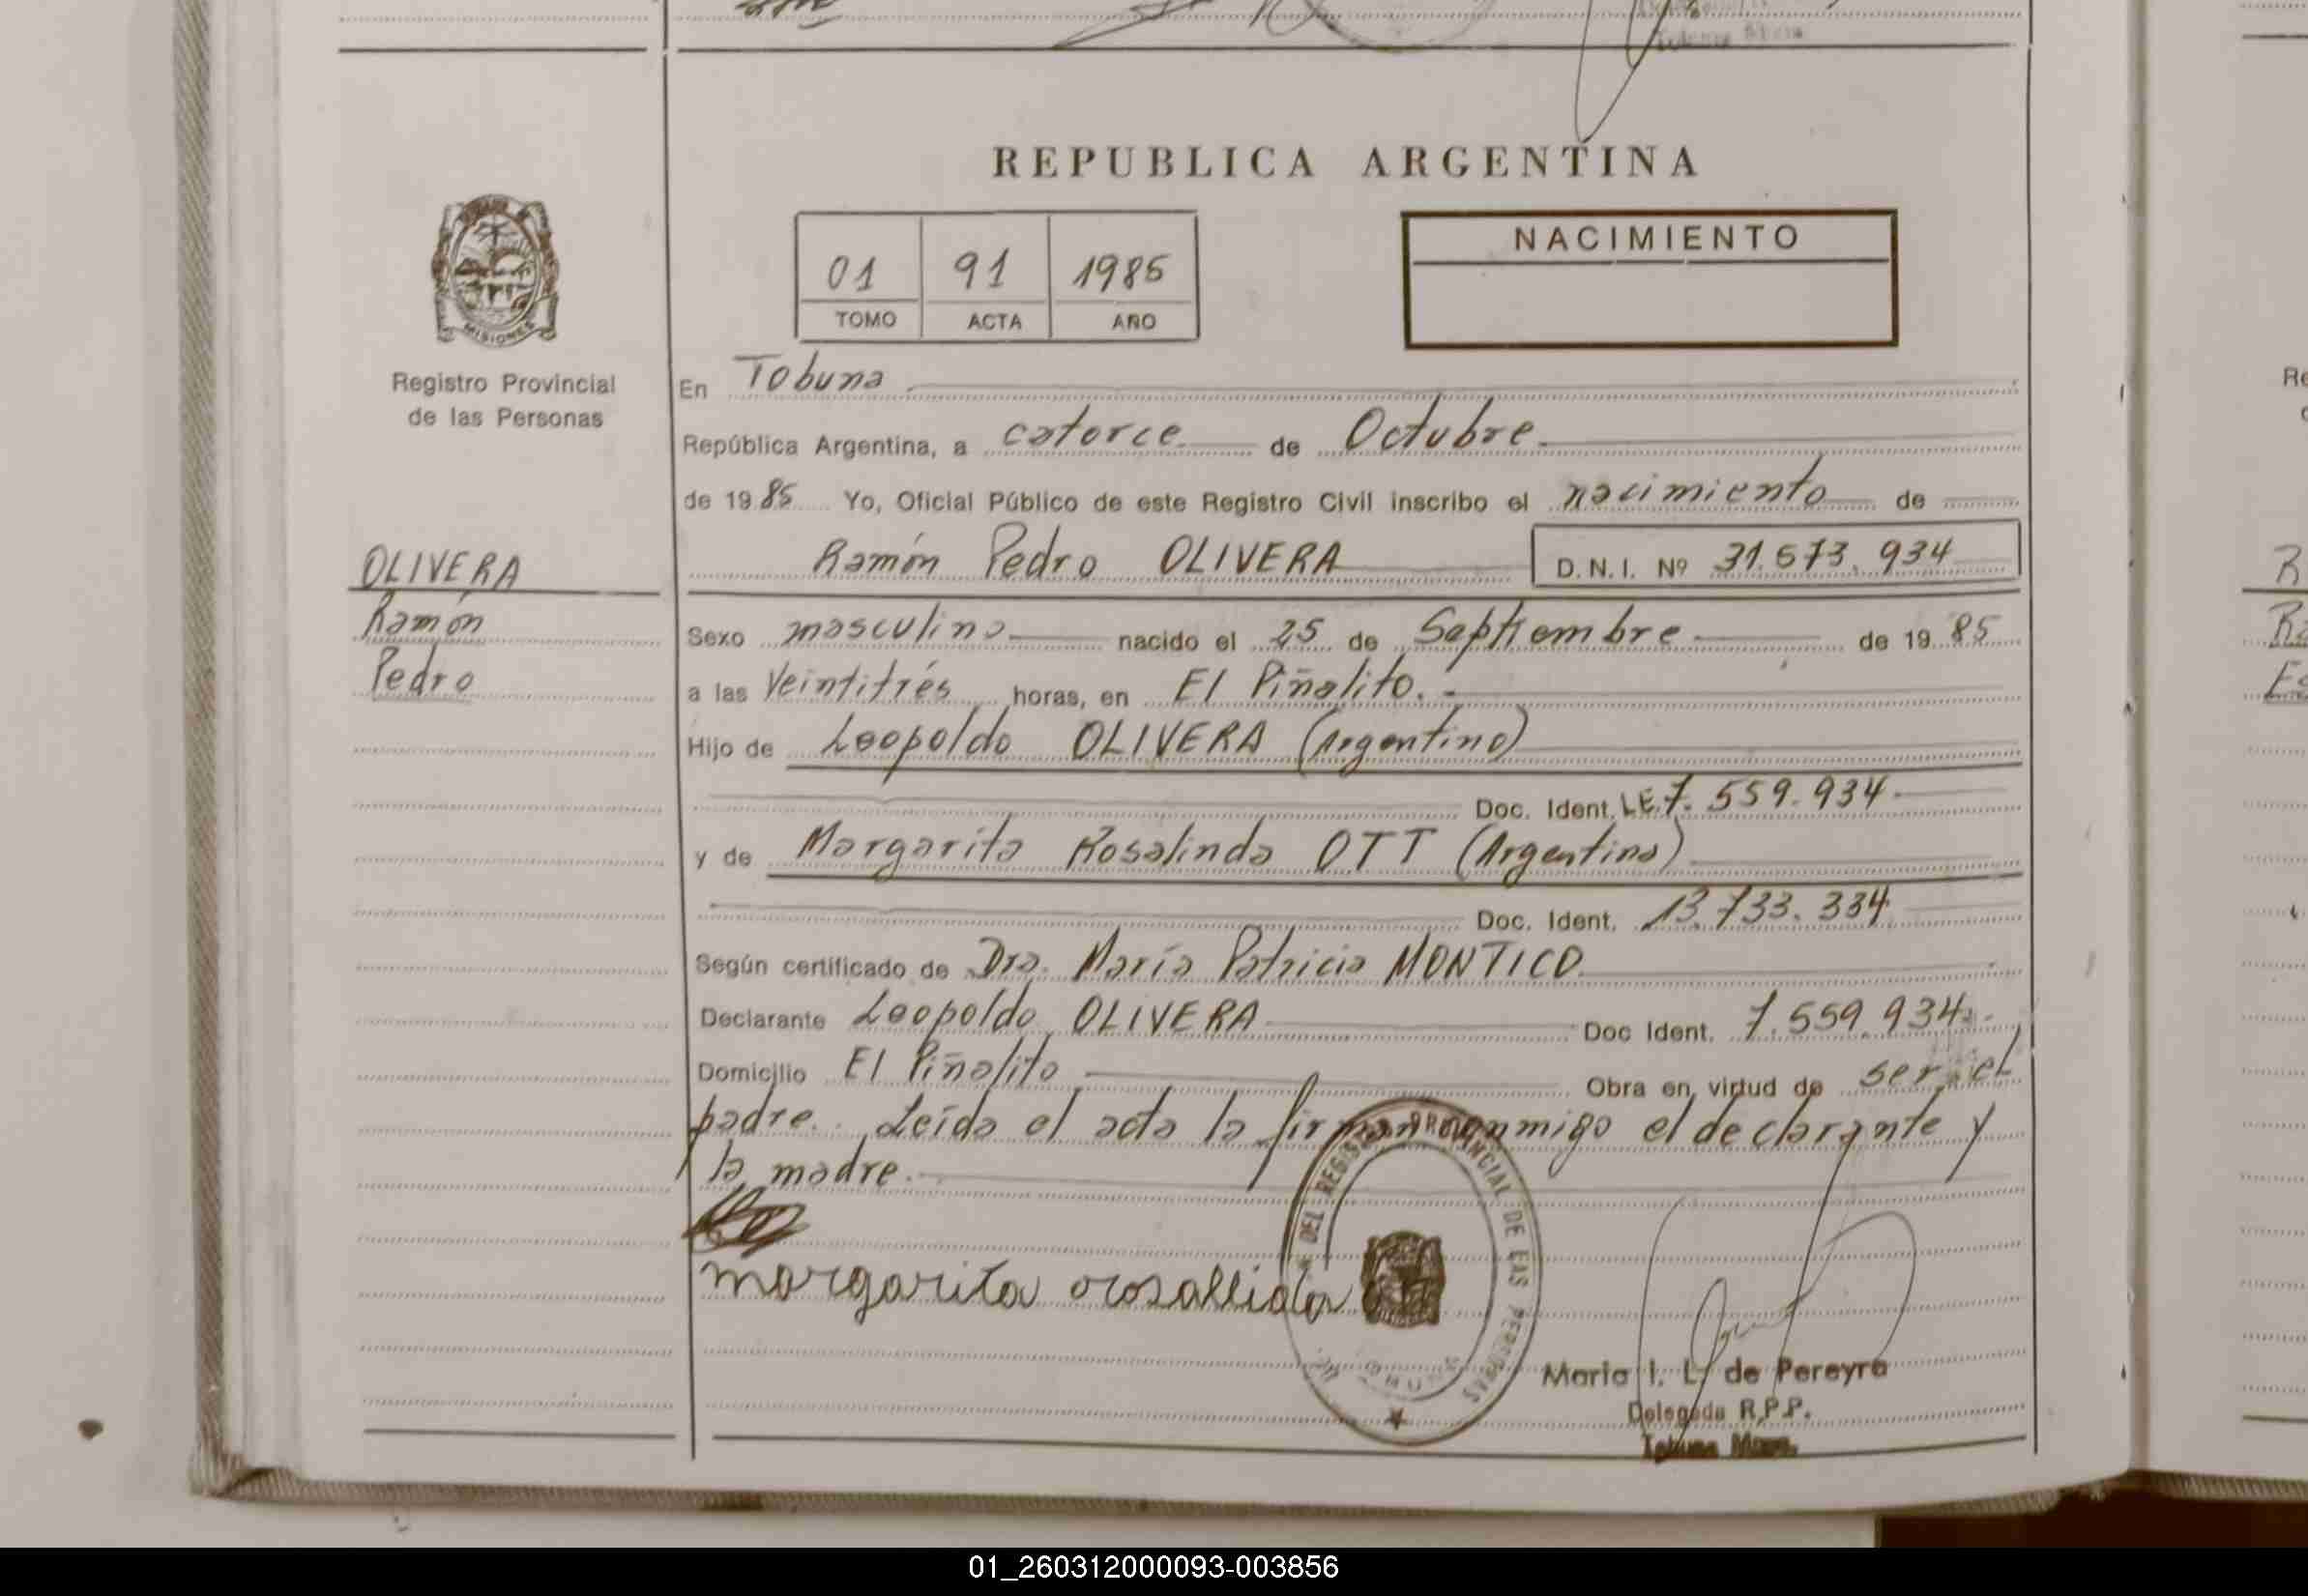 REPUBLICA ARGENTINA
MISIONES
Registro Provincial
de las Personas
01 91 1985
TOMO ACTA AÑO
NACIMIENTO
En Tobuna
República Argentina, a catorce de Octubre
de 1985 Yo, Oficial Público de este Registro Civil inscribo el nacimiento de
OLIVERA
Ramón
Pedro
Ramón Pedro OLIVERA D.N.I. Nº 31.573.934
Sexo masculino nacido el 25 de Septiembre de 1985
a las Veintitrés horas, en El Piñalito.
Hijo de Leopoldo OLIVERA (Argentino)
Doc. Ident. L.E. 7.559.934
y de Margarita Rosalinda OTT (Argentina)
Doc. Ident. 13.733.334
Según certificado de Dra. María Patricia MONTICO
Declarante Leopoldo OLIVERA Doc Ident. 7.559.934
Domicilio El Piñalito Obra en virtud de ser el
padre. Leída el acta la firman conmigo el declarante y
la madre.
margarita
DEL REGISTRO PROVINCIAL DE LAS PERSONAS
Maria I. L. de Pereyra
Delegada R.P.P.
Tobuna Mnes.
01_260312000093-003856